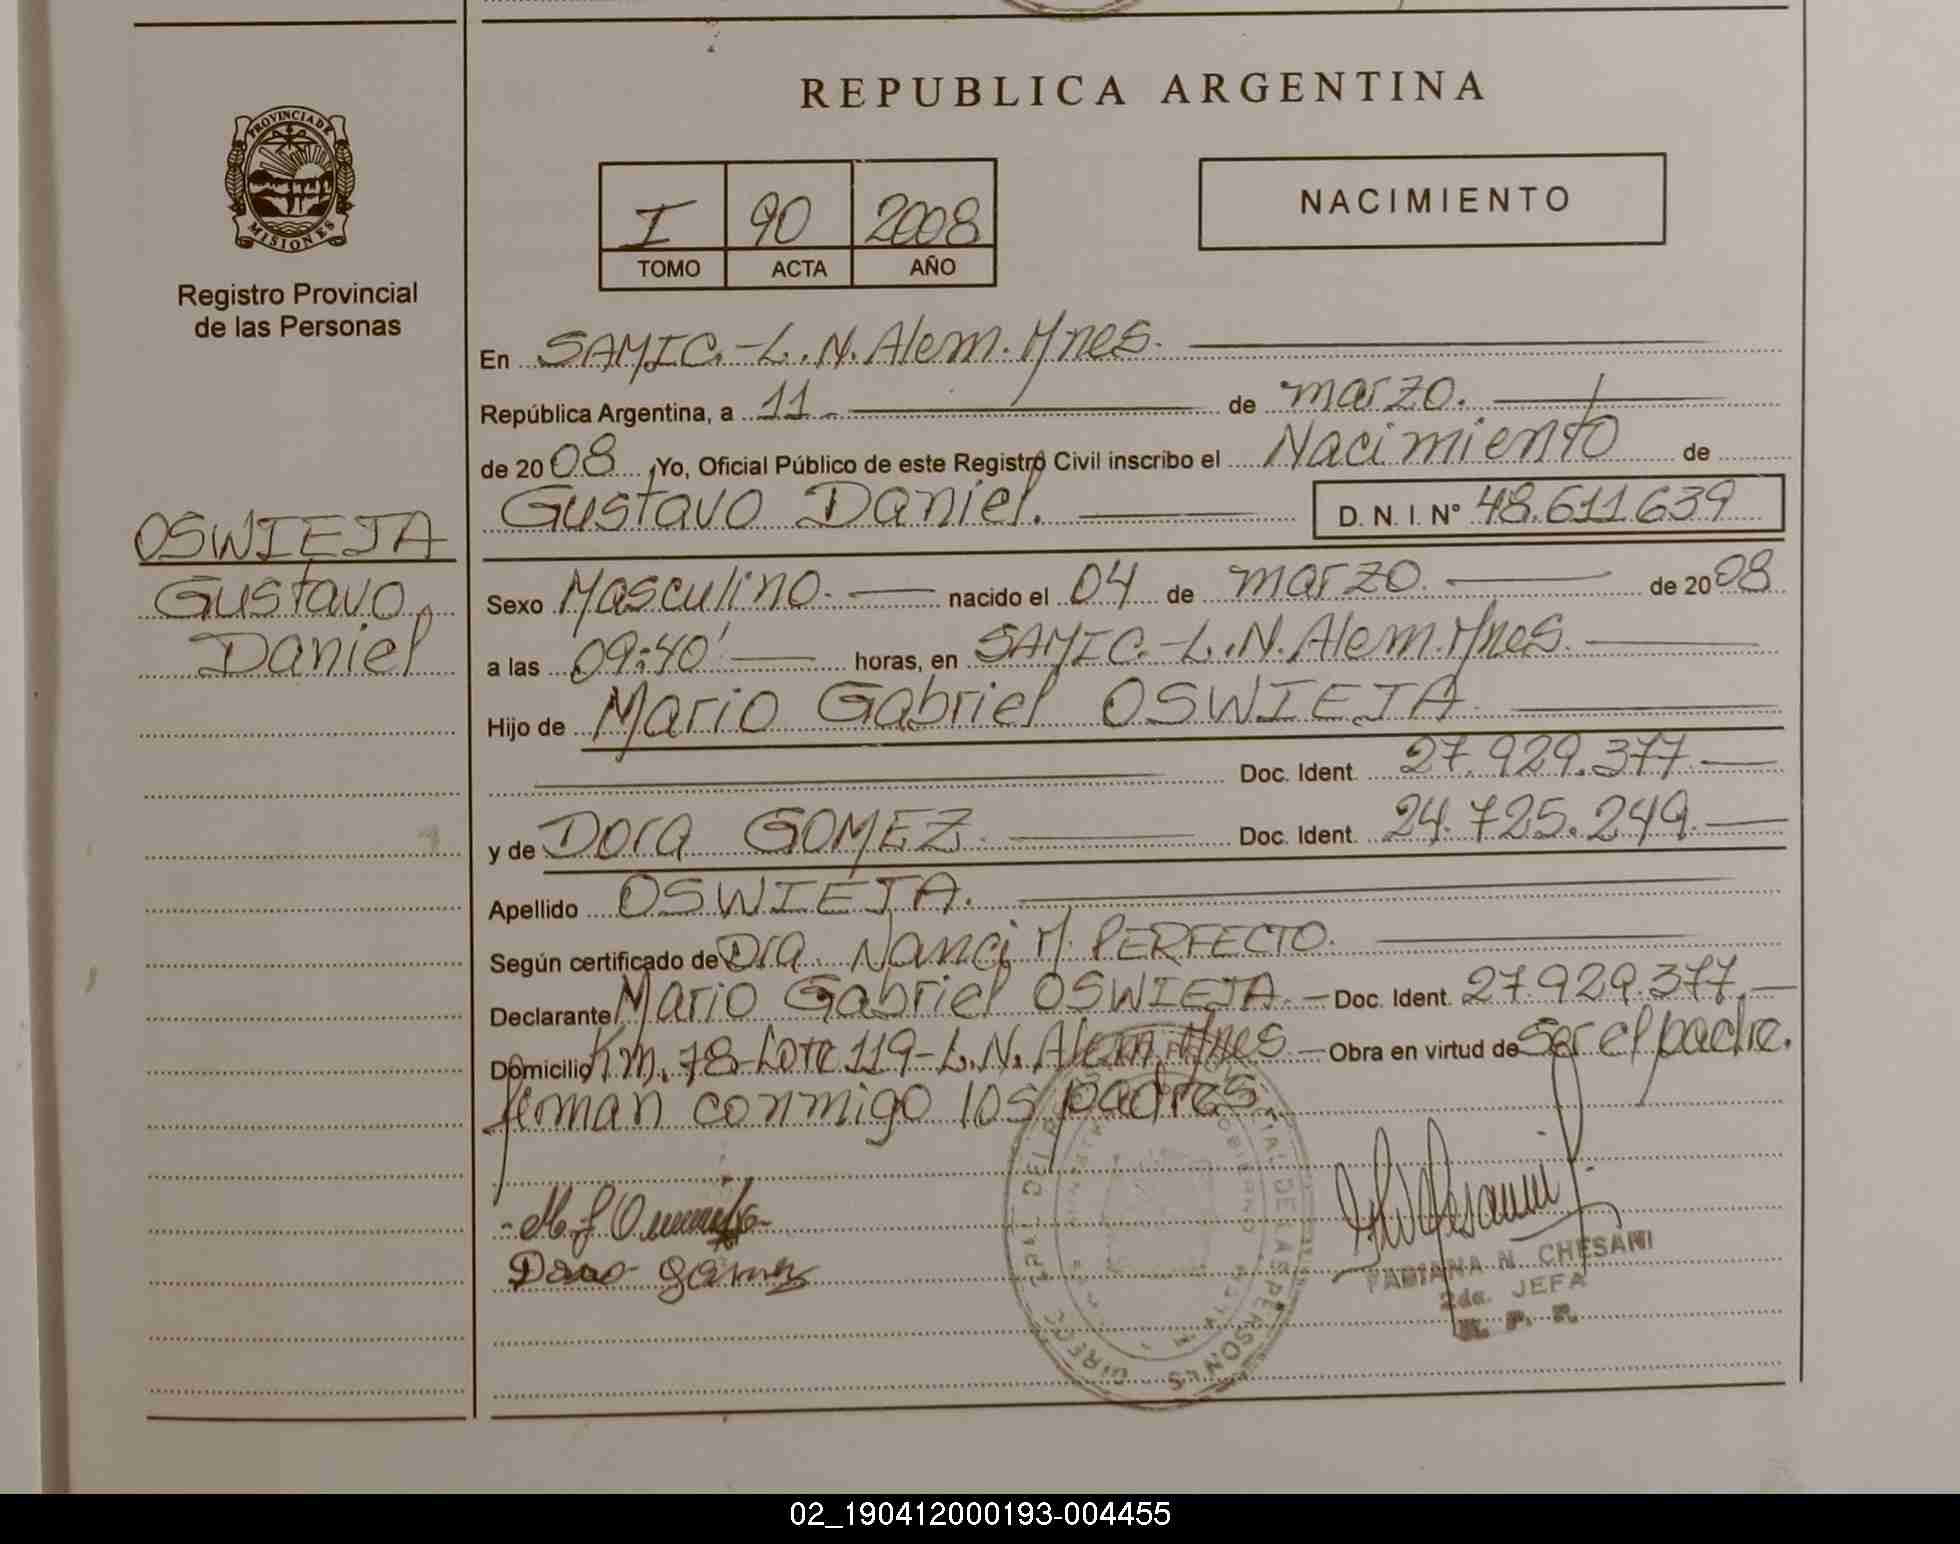 REPUBLICA ARGENTINA
PROVINCIA DE
MISIONES
Registro Provincial
de las Personas
I 90 2008
TOMO ACTA AÑO
NACIMIENTO
En SAMIC.-L.N. Alem. Mnes.
República Argentina, a 11 de marzo.
de 2008, Yo, Oficial Público de este Registro Civil inscribo el Nacimiento de
Gustavo Daniel. D. N. I. Nº 48.611.639
OSWIEJA
Gustavo
Daniel
Sexo Masculino. nacido el 04 de marzo. de 2008
a las 09:40' horas, en SAMIC.-L.N. Alem. Mnes.
Hijo de Mario Gabriel OSWIEJA.
Doc. Ident. 27.929.377
y de Dora GOMEZ. Doc. Ident. 24.725.249.
Apellido OSWIEJA.
Según certificado de Dra. Nanci M. PERFECTO.
Declarante Mario Gabriel OSWIEJA.- Doc. Ident. 27.929.377.
Domicilio Km. 78-Lote 119-L.N. Alem. Mnes - Obra en virtud de Ser el padre.
firman conmigo los padres.
FABIANA N. CHESANI
2da. JEFA
R. P. P.
02_190412000193-004455